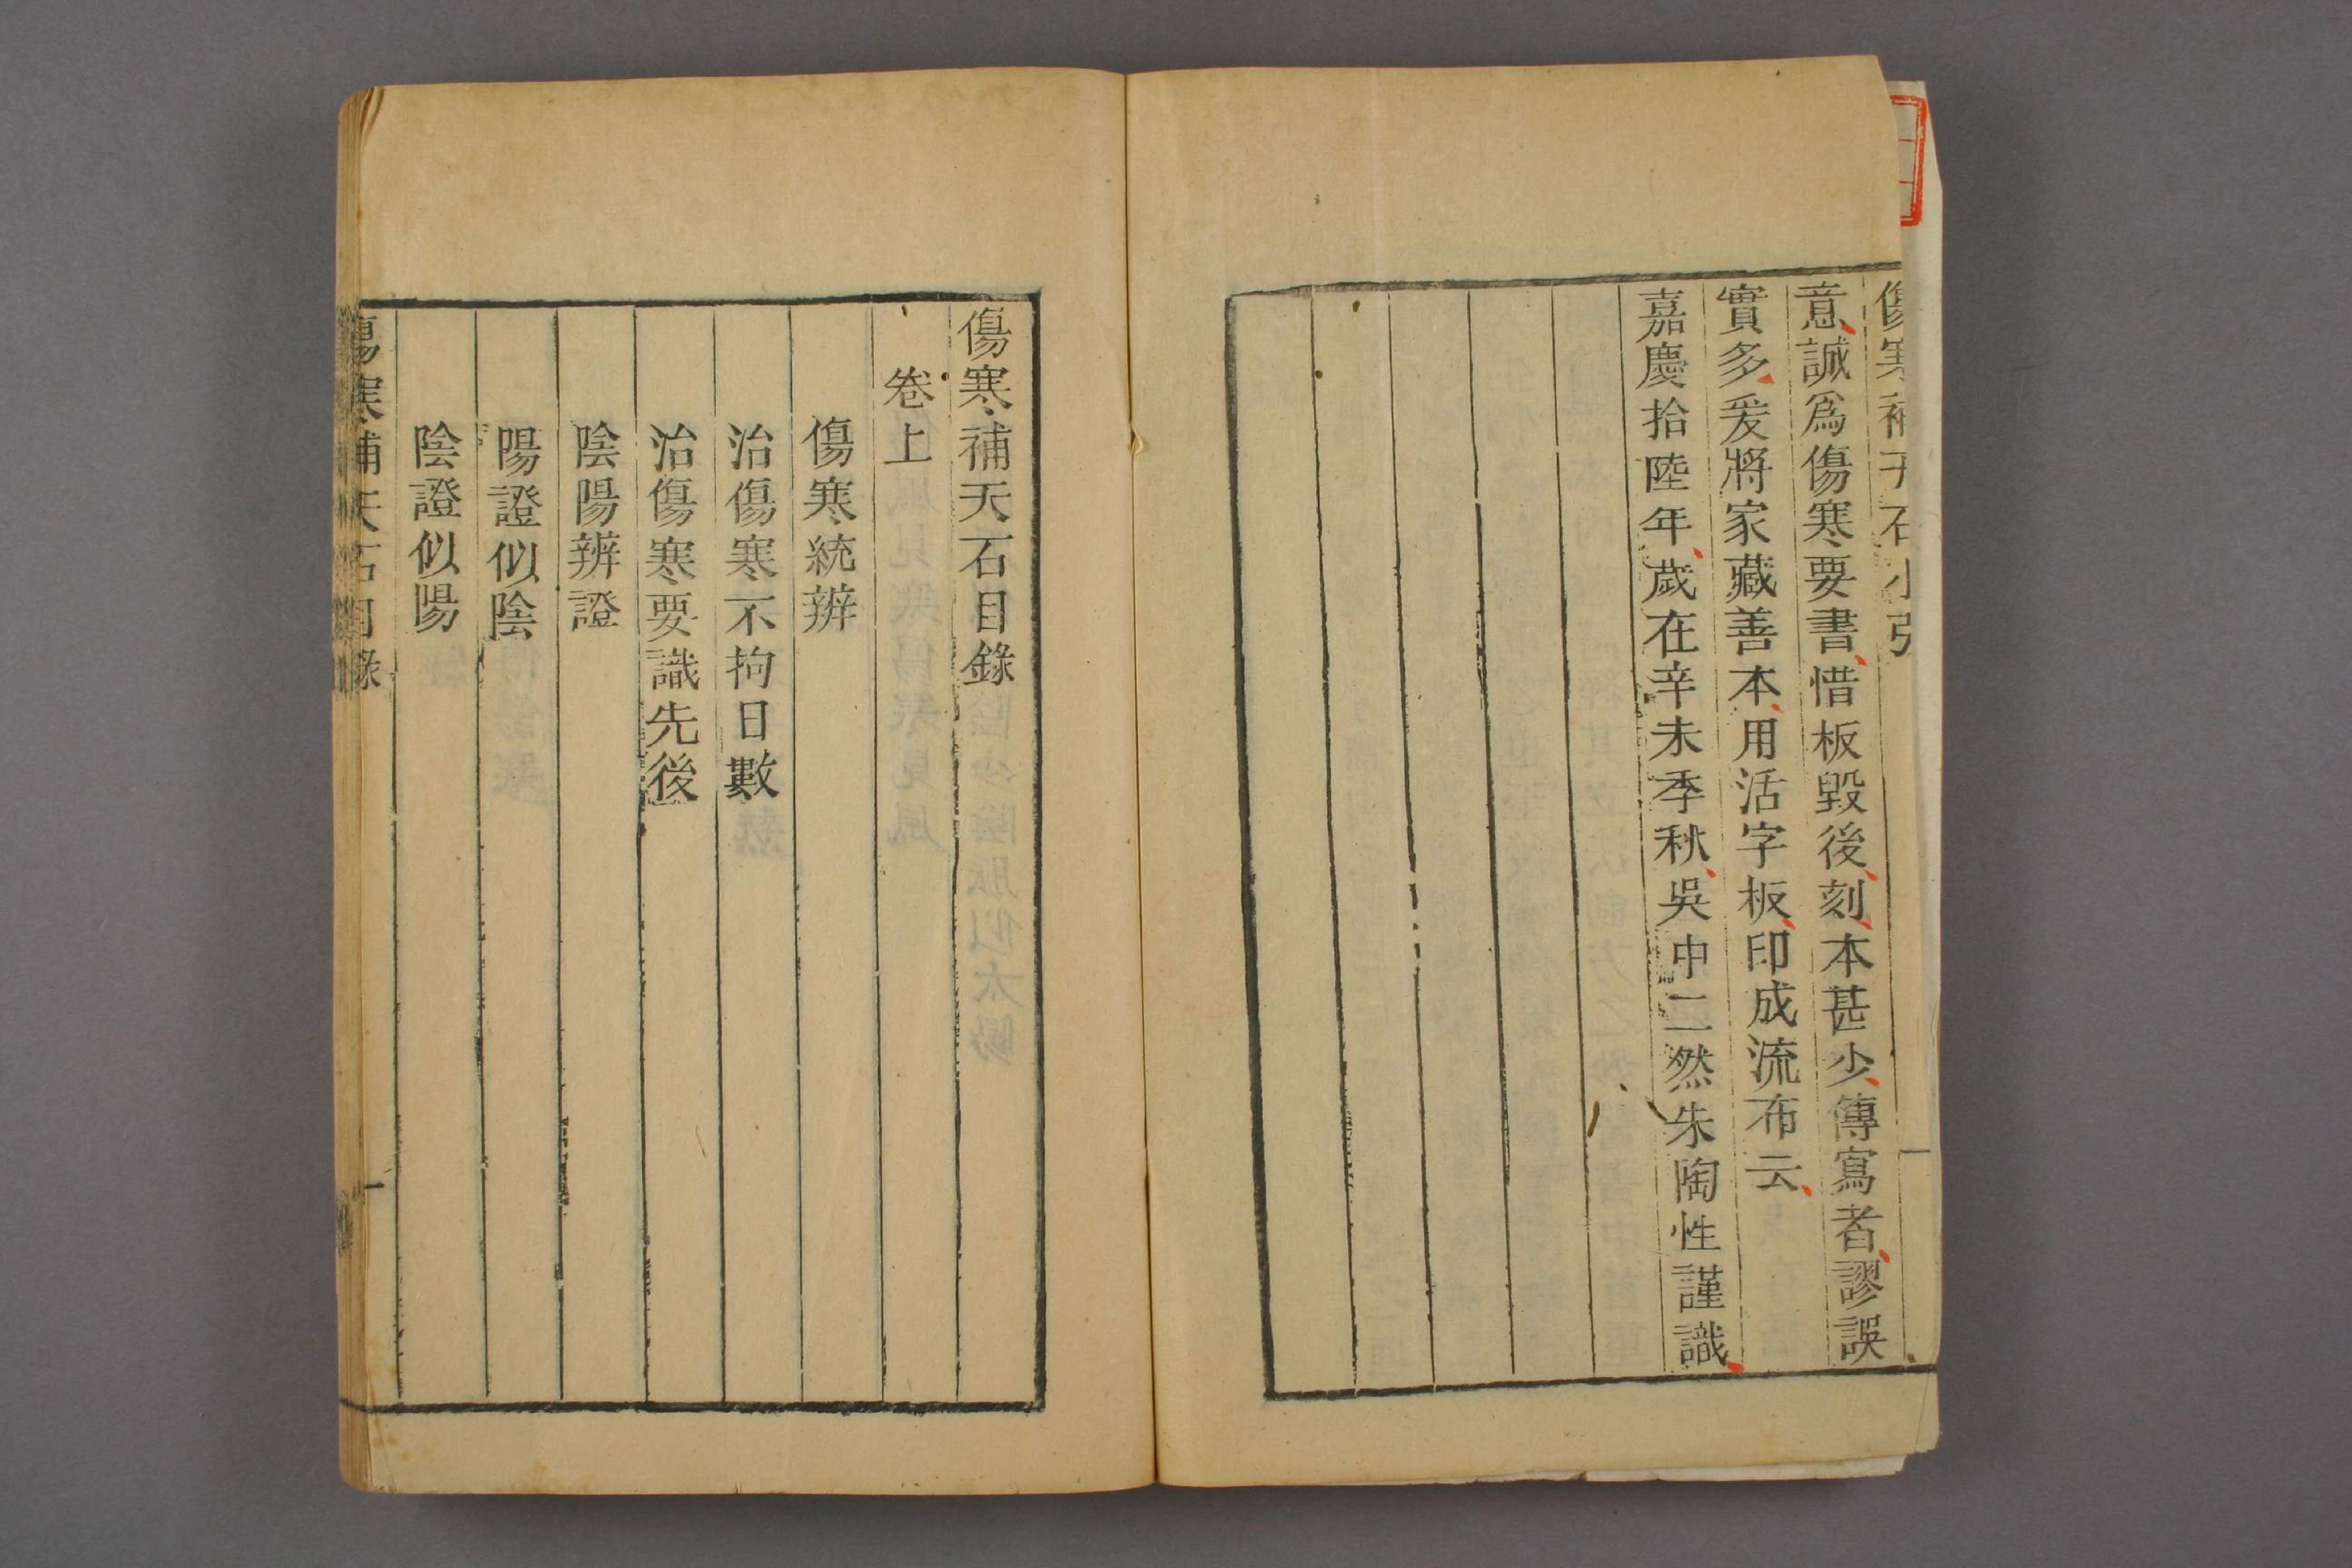 傷寒補天石小引
意誠爲傷寒要書惜板毀後刻本甚少傳寫者謬誤
實多爰將家藏善本用活字板印成流布云
嘉慶拾陸年歲在辛未季秋吳中二然朱陶性謹識
傷寒補天石目錄
卷上
傷寒統辨
治傷寒不拘日數
治傷寒要識先後
陰陽辨證
陽證似陰
陰證似陽
傷寒補天石目錄
一